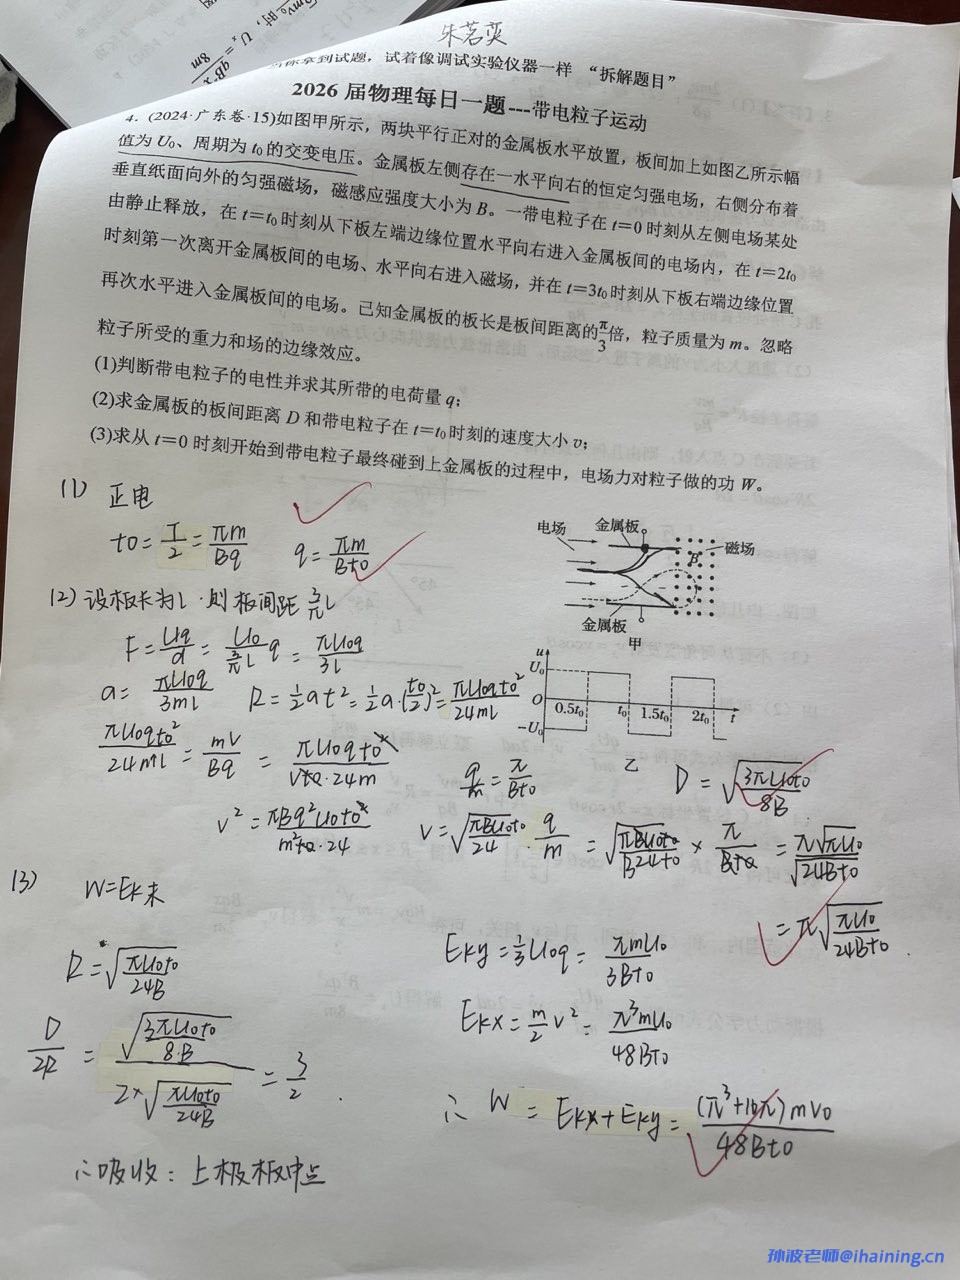 朱茗奕
qB²x²
8m
拿到试题，试着像调试实验仪器一样 “拆解题目”
2026 届物理每日一题---带电粒子运动
4. (2024·广东卷·15)如图甲所示，两块平行正对的金属板水平放置，板间加上如图乙所示幅
值为 U₀、周期为 t₀ 的交变电压。金属板左侧存在一水平向右的恒定匀强电场，右侧分布着
垂直纸面向外的匀强磁场，磁感应强度大小为 B。一带电粒子在 t=0 时刻从左侧电场某处
由静止释放，在 t=t₀ 时刻从下板左端边缘位置水平向右进入金属板间的电场内，在 t=2t₀
时刻第一次离开金属板间的电场、水平向右进入磁场，并在 t=3t₀ 时刻从下板右端边缘位置
再次水平进入金属板间的电场。已知金属板的板长是板间距离的π/3倍，粒子质量为 m。忽略
粒子所受的重力和场的边缘效应。
(1)判断带电粒子的电性并求其所带的电荷量 q；
(2)求金属板的板间距离 D 和带电粒子在 t=t₀ 时刻的速度大小 v；
(3)求从 t=0 时刻开始到带电粒子最终碰到上金属板的过程中，电场力对粒子做的功 W。
(1) 正电
t0 = T/2 = πm/Bq q = πm/Bt0
(2) 设板长为l．则板间距 3/π l
F = Uq/d = U0/(3/π l) q = πU0q/3l
a = πU0q/3ml R = ½at² = ½a·(t0/2)² = πU0qt0²/24ml
πU0qt0²/24ml = mv/Bq = πU0qt0²/vt0·24m
q/m = π/Bt0 D = √(3πU0t0/8B)
v² = πBq²U0t0²/m²t0·24 v = √(πBU0t0/24) · q/m = √(πBU0t0/B²24t0) × π/Bt0 = π√πU0/√24Bt0
= π√(πU0/24Bt0)
(3) W = Ek末
R = √(πU0t0/24B)
D/2R = √(3πU0t0/8·B) / 2×√(πU0t0/24B) = 3/2
∴吸收：上极板中点
Eky = ⅓U0q = πmU0/3Bt0
Ekx = m/2 v² = π³mU0/48Bt0
∴ W = Ekx + Eky = (π³+16π)mV0/48Bt0
电场
金属板
B
磁场
金属板
甲
u
U₀
O
−U₀
0.5t₀
t₀
1.5t₀
2t₀
t
乙
孙波老师@ihaining.cn